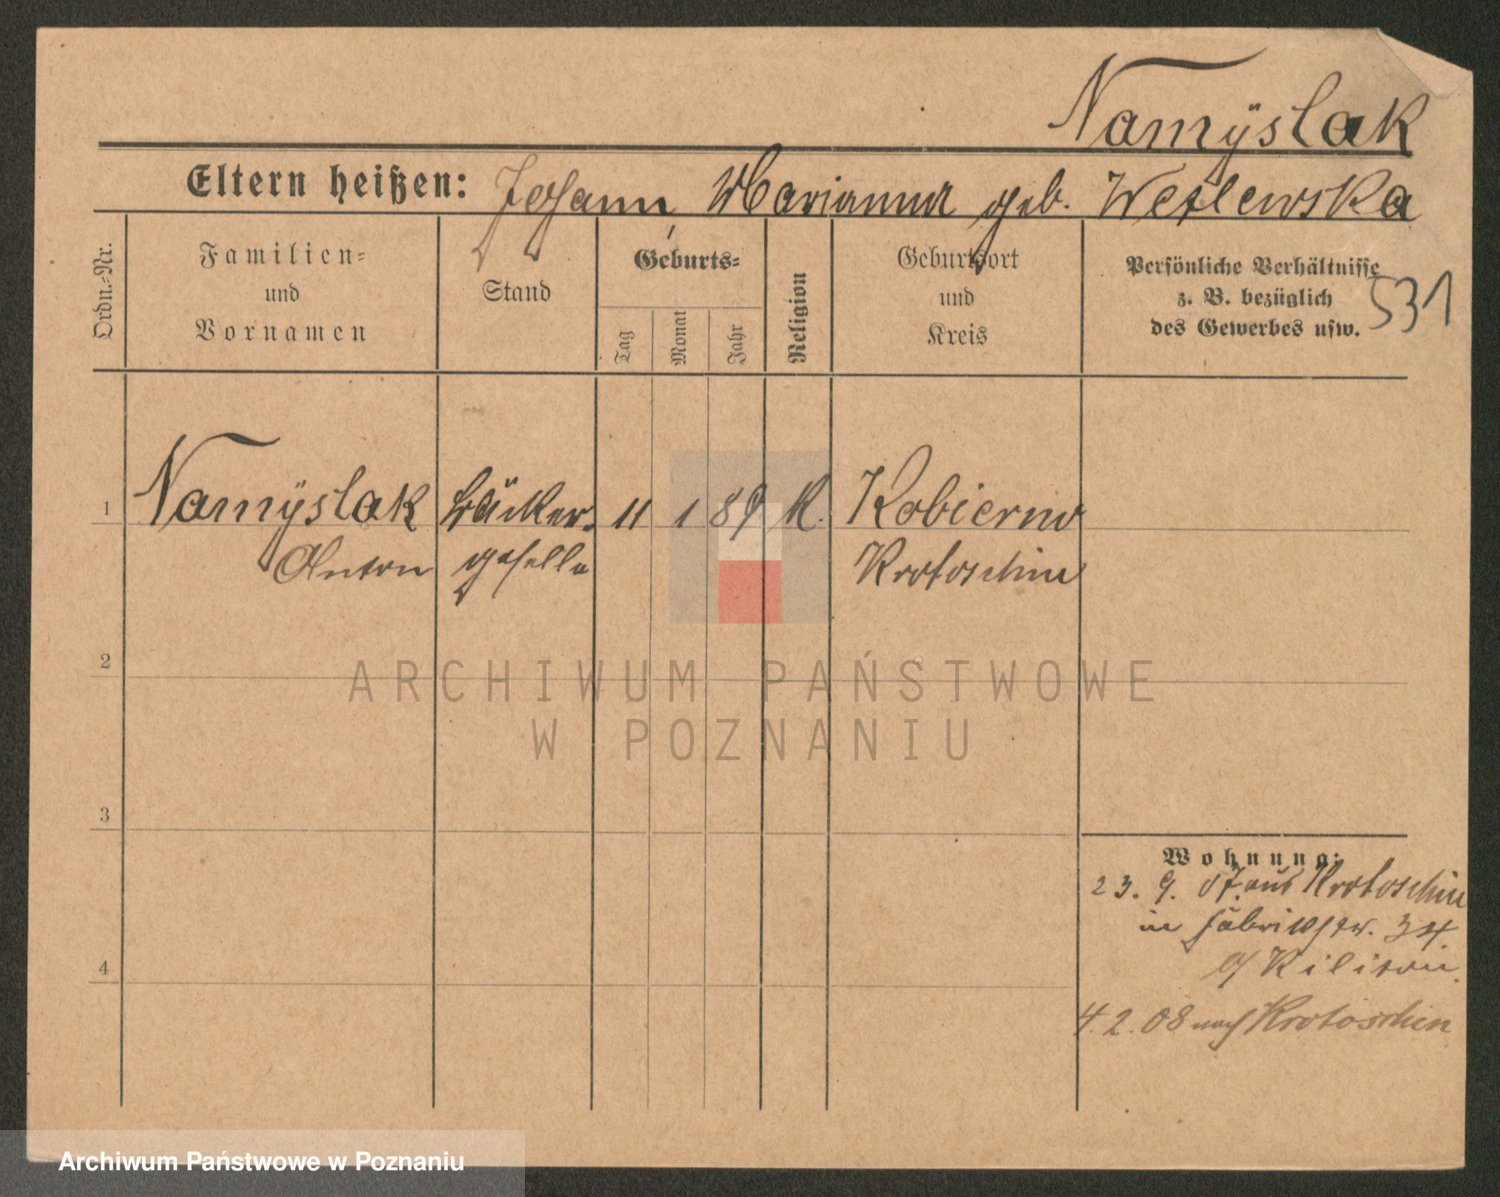 Namÿslak
Eltern heißen: Johann, Marianna geb. Weslewska
Ordn.-Nr.
Familien- und Vornamen
Stand
Geburts-
Tag
Monat
Jahr
Religion
Geburtsort und Kreis
Persönliche Verhältnisse
z. B. bezüglich
des Gewerbes usw.
531
1 Namÿslak Bäcker- 11 1 89 K. Kobierno
Anton geselle Krotoschin
2
3
4
Wohnung:
23. 9. 07. aus Krotoschin
in 34
4. 2. 08 nach Krotoschin
ARCHIWUM PAŃSTWOWE
W POZNANIU
Archiwum Państwowe w Poznaniu